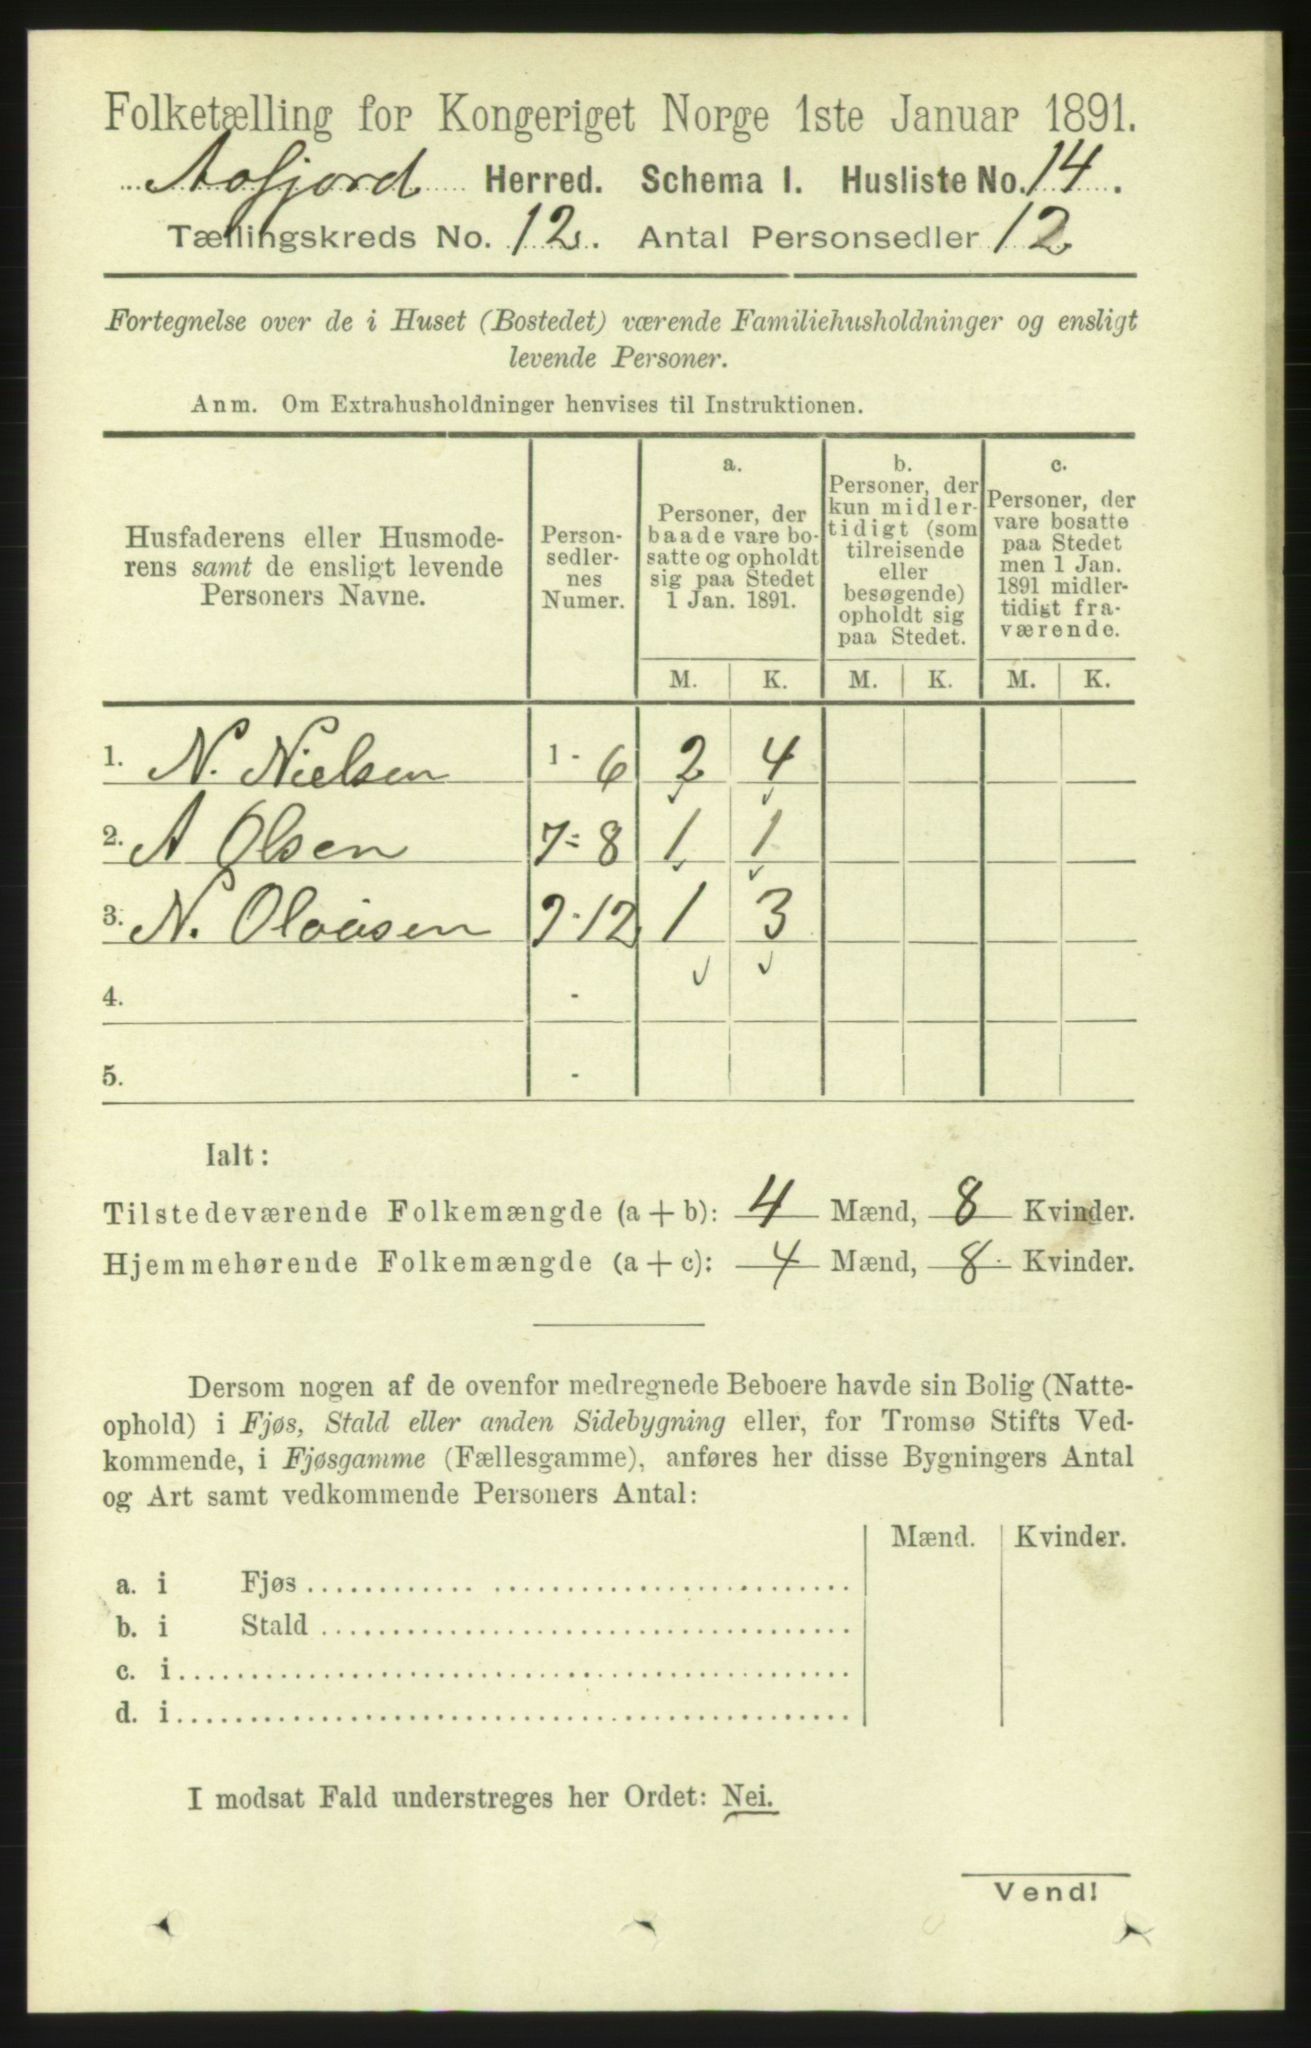 Folketælling for Kongeriget Norge 1ste Januar 1891.
Aafjord Herred. Schema I. Husliste No. 14.
Tællingskreds No. 12. Antal Personsedler 12
Fortegnelse over de i Huset (Bostedet) værende Familiehusholdninger og ensligt
levende Personer.
Anm. Om Extrahusholdninger henvises til Instruktionen.
Husfaderens eller Husmode-
rens samt de ensligt levende
Personers Navne.
Person-
sedler-
nes
Numer.
a.
Personer, der
baade vare bo-
satte og opholdt
sig paa Stedet
1 Jan. 1891.
b.
Personer, der
kun midler-
tidigt (som
tilreisende
eller
besøgende)
opholdt sig
paa Stedet.
c.
Personer, der
vare bosatte
paa Stedet
men 1 Jan.
1891 midler-
tidigt fra-
værende.
M. K. M. K. M. K.
1. N. Nielsen 1 - 6 2 4
2. A Olsen 7 - 8 1 1
3. N. 9 - 12 1 3
4. -
5. -
Ialt:
Tilstedeværende Folkemængde (a + b): 4 Mænd, 8 Kvinder.
Hjemmehørende Folkemængde (a + c): 4 Mænd, 8 Kvinder.
Dersom nogen af de ovenfor medregnede Beboere havde sin Bolig (Natte-
ophold) i Fjøs, Stald eller anden Sidebygning eller, for Tromsø Stifts Ved-
kommende, i Fjøsgamme (Fællesgamme), anføres her disse Bygningers Antal
og Art samt vedkommende Personers Antal:
Mænd. Kvinder.
a. i Fjøs
b. i Stald
c. i
d. i
I modsat Fald understreges her Ordet: Nei.
Vend!